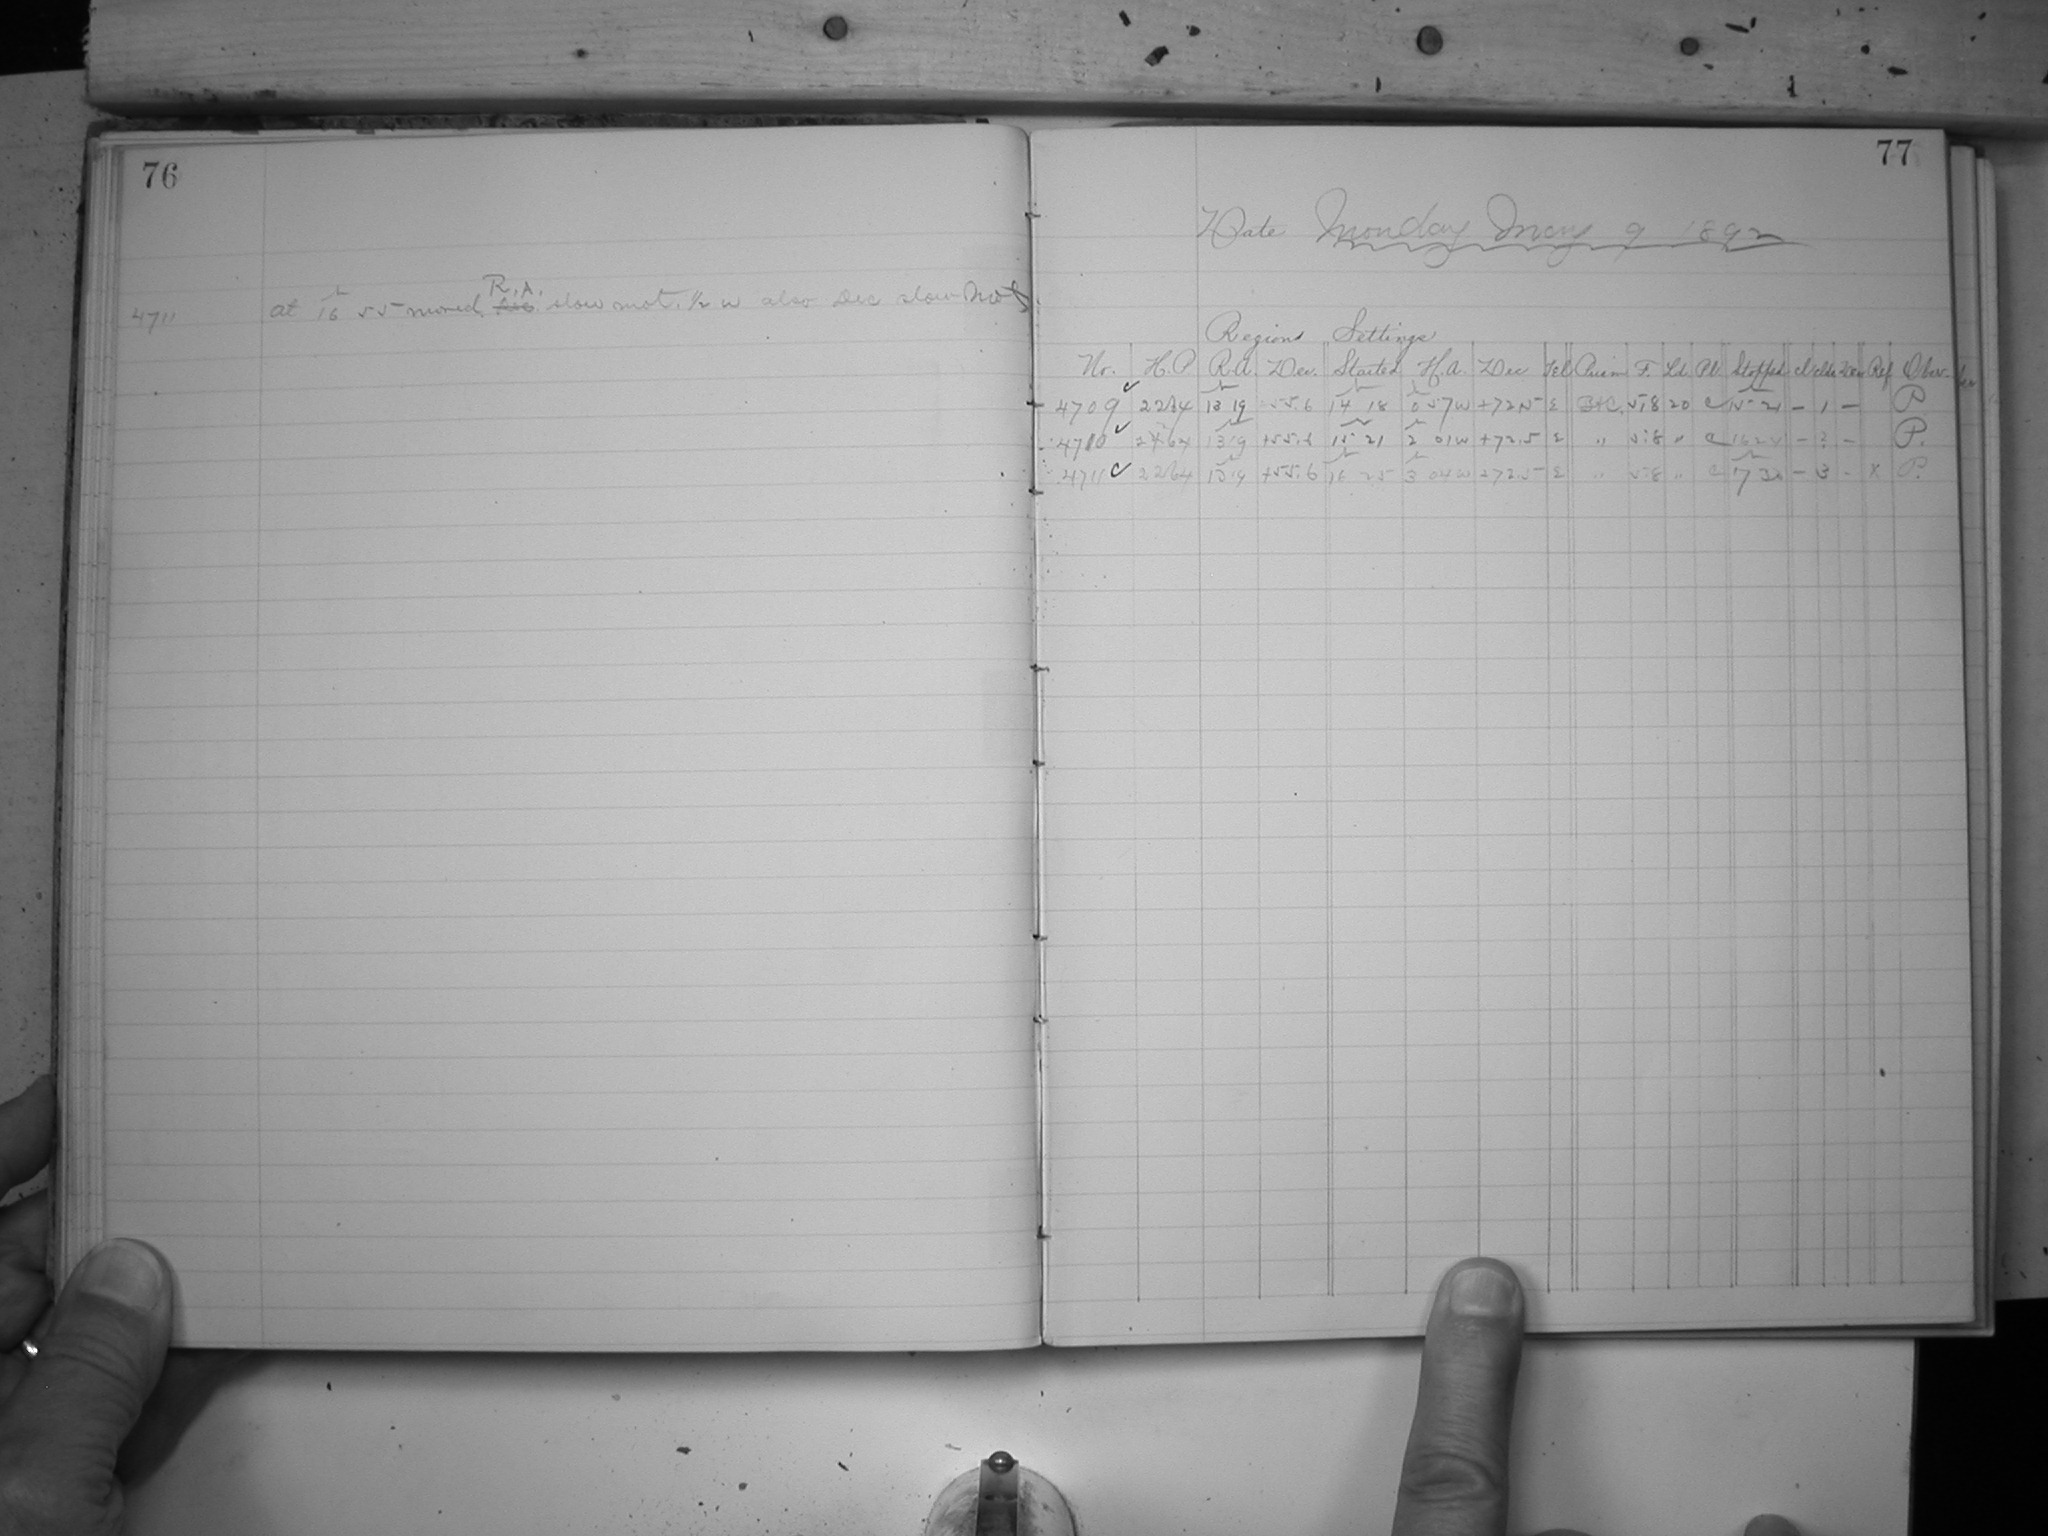 76
4711 at 16h 55 moved Dec. R.A. slow mot. ½ w also Dec slow Mot
77
Date Monday May 9 1892
Regions Settings
No. H.P R.A. Dec. Started H.A. Dec Tel Prism F. Ld Pl Stopped Cl Obsr.
4709 ✓ 2264 13h 19 +55.6 14h 18 0h 57w +72.5 E 5.8 20 C 15h 21 – 1 – P
4710 ✓ 2264 13h 19 +55.6 15h 21 2h 01w +72.5 E " 5.8 " C 16h 24 – 2 – P.
4711 ✓ 2264 13h 19 +55.6 16h 25 3h 04w +72.5 E " 5.8 " C 17h 30 – 3 – x P.